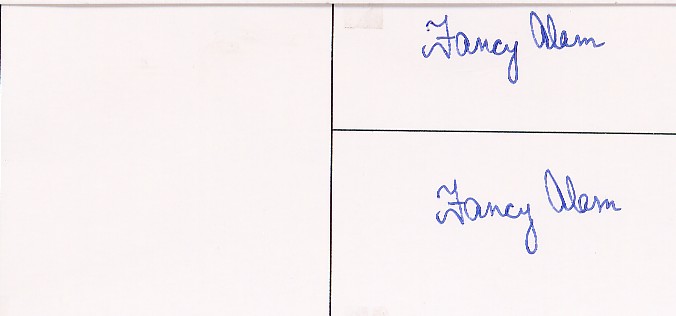 Fancy Alam
Fancy Alam